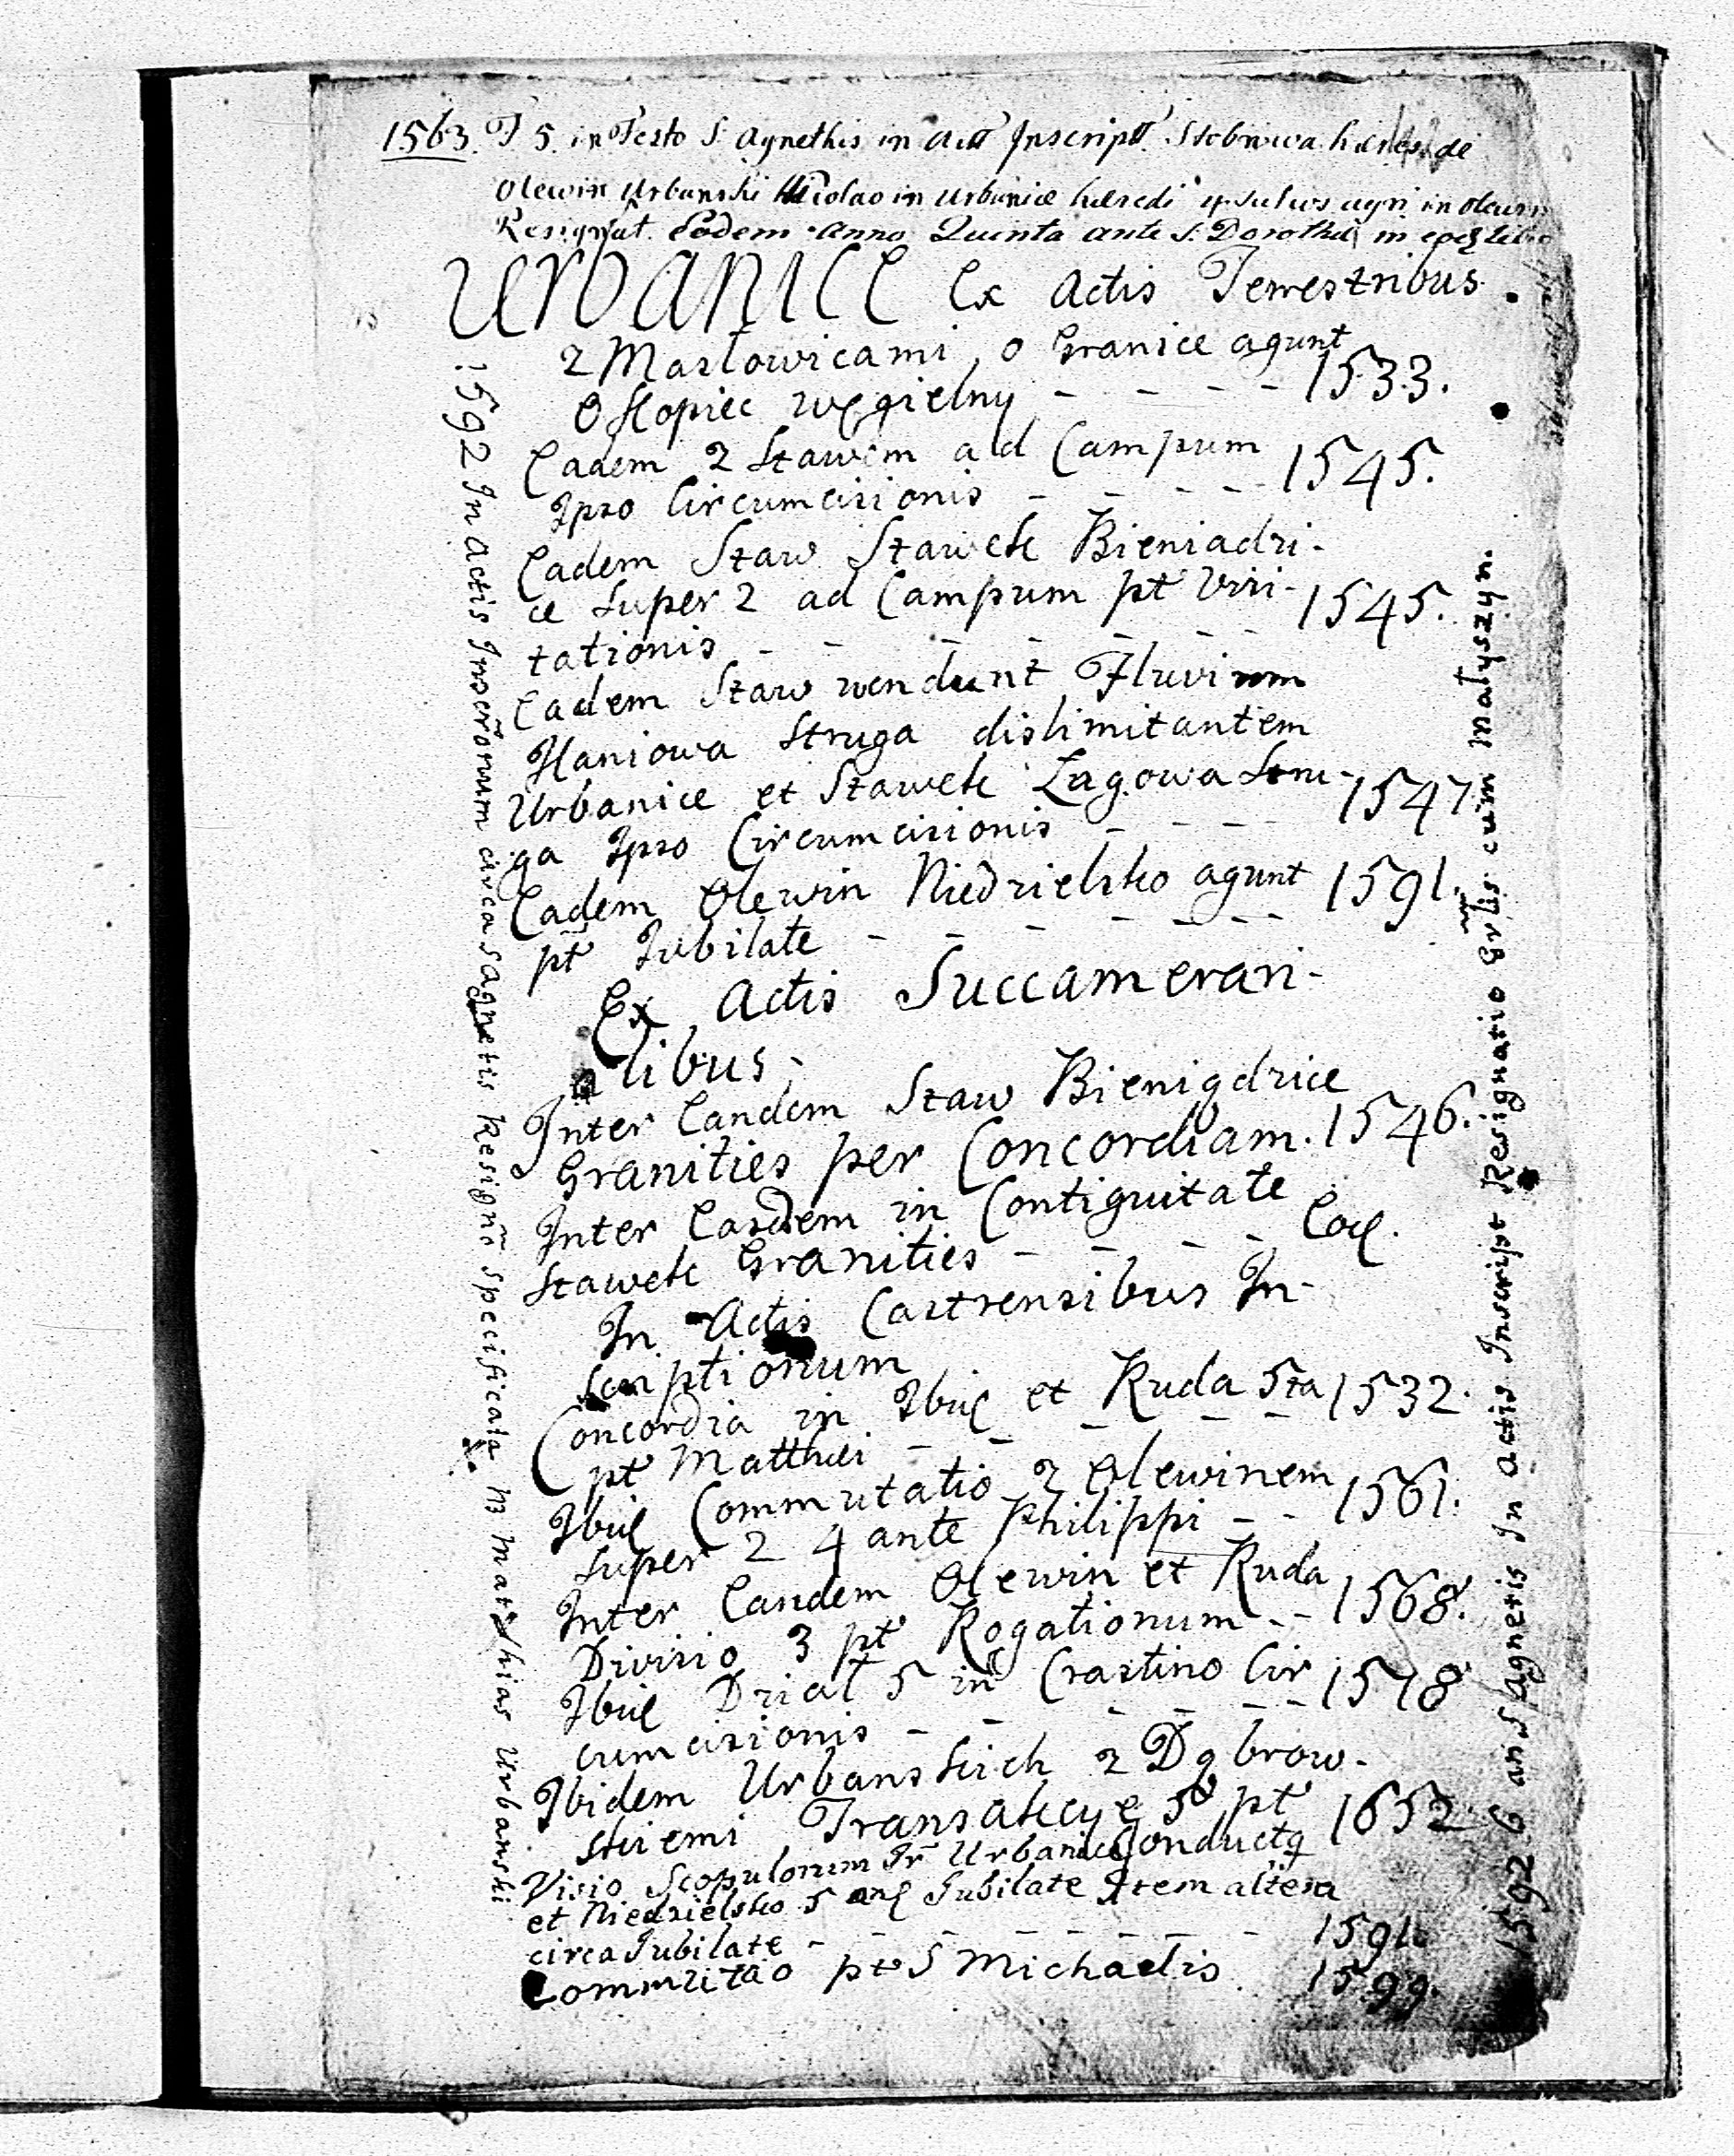 1563. F 5. in Festo S. Agnethis in Act Inscript. Stobnica hæres de
Olewin Urbanski Nicolao in Urbanice hæredi 4 sulcos agri in Olewin
Resignat. Eodem Anno Quinta ante S. Dorotheæ in
Urbanice Ex Actis Terrestribus
z Masłowicami, o Granice agunt
O Kopiec węgielny - - - - 1533.
Eadem z Stawem ad Campum
Ipso Circumcisionis - - - - 1545.
Eadem Staw Stawek Bieniadzi-
ce super 2 ad Campum pt Visi- 1545.
tationis - - - - - - -
Eadem Staw vendunt Fluvium
Haniowa Struga dislimitantem
Urbanice et Stawek Łagowa Stru- 1547
ga Ipso Circumcisionis - - - -
Eadem Olewin Niedzielsko agunt 1591.
pt Jubilate - - - - - -
Ex Actis Succamerari-
alibus.
Inter Eandem Staw Bienigdzice
Granities per Concordiam. 1546.
Inter Easdem in Contiguitate
Stawek Granities - - - - Eod.
In Actis Castrensibus In-
scriptionum
Concordia in Ibid et Ruda 5ta 1532.
pt Matthæi - - - - -
Ibid Commutatio z Olewinem
super 2 4 ante Philippi - - 1561.
Inter Eandem Olewin et Ruda
Divisio 3 pt Rogationum - - 1568.
Ibid Dział 5 in Crastino Cir 1578
cumcisionis - - - - -
Ibidem Urbanskich z Dąbrow-
skiemi Transakcye 5 pt 1652
Visio Scopulorum Ir Urbanice Conducta
et Niedzielsko 5 an Jubilate Item altera
circa Jubilate - - - - - - - 1591.
Commutatio pt S Michaelis 1599.
1592 In Actis Inscronum circa S Agnetis Resigno specificata M Mathias Urbanski
1592 6 an S Agnetis In Actis Inscript Resignatio cum Małyszyn.